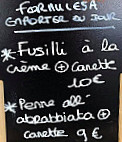 FORMULES A
EMPORTER DU JOUR
* Fusilli à la
crème + canette
10€
* Penne all'
abrabbiata +
canette 9€